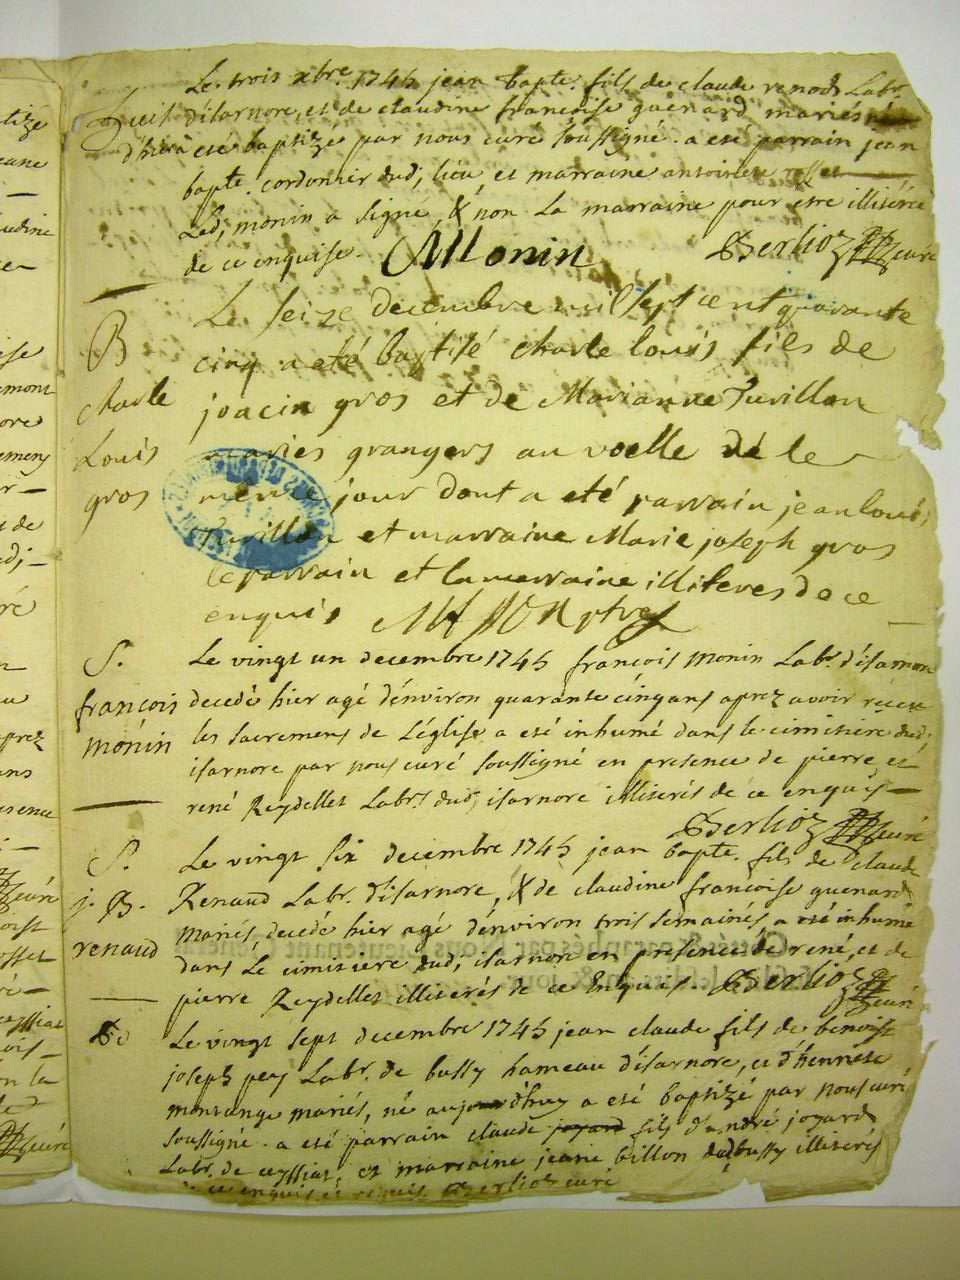 Le trois xbre 1745 jean bapte. fils de claude renod Labr.
d'isarnore, et de claudine francoise guenard mariés né
d'hier a eté baptizé par nous curé soussigné. a eté parrain jean
bapte. cordonier dud; lieu et marraine antoinete rosset
Led; monin a signé, & non La marraine pour etre illitérée
de ce enquise. Monin Berlioz curé
B
charle
Louis
gros
Le seize decembre mil sept cent quarante
cinq a eté baptisé charle louis fils de
joacin gros et de Marianne Furillon
maries grangers au voelle né le
même jour dont a eté parrain jean louis
Furillon et marraine Marie joseph gros
le parrain et la merraine illiteres de ce
enquis
S.
françois
mónin
Le vingt un decembre 1745 françois monin Labr. d'isarnore
decedé hier agé d'environ quarante cinq ans aprez avoir réceu
les sacremens de L'église a eté inhumé dans le cimitiere dud.
isarnore par nous curé soussigné en presence de pierre, et
rené Reydellet Labrs. dud; isarnore illiterés de ce enquis
Berlioz curé
S.
j. B.
renaud
Le vingt six decembre 1745 jean bapte. fils de claude
Renaud Labr. d'isarnore, & de claudine francoise guenard
mariés decedé hier agé d'environ trois semaines, a eté inhumé
dans Le cimitiere dud; isarnore en présence de rené, et de
pierre Reydellet illiterés de ce Enquis. Berlioz curé
Le vingt sept decembre 1745 jean claude fils de benoist
joseph pery Labr. de bussy hameau d'isarnore, et d'henriete
montange mariés, né aujourd'huy a eté baptizé par nous curé
soussigné. a eté parrain claude joyard fils d'andré joyard
Labr. de ceyssiat, et marraine jeane billon dud; bussy illiterés
de ce enquis et requis. Berlioz curé